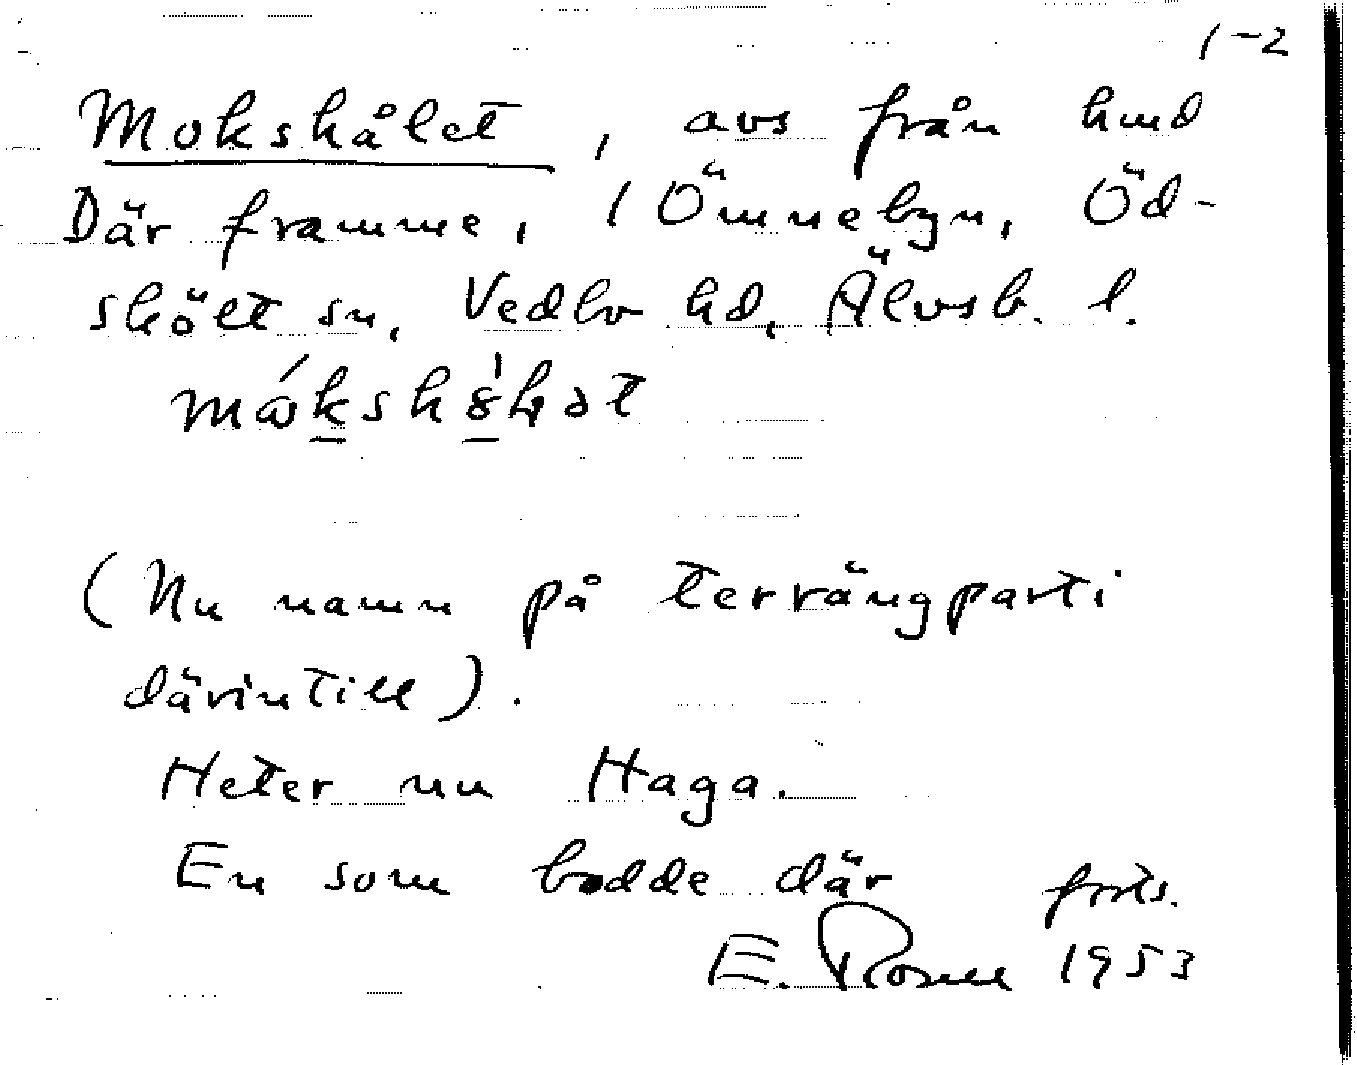 1-2
Mokshålet, avs från hmd
Där framme, 1 Ömnebyn, Öd-
skölt sn, Vedbo hd, Älvsb. l.
(Nu namn på terrängparti
därintill).
Heter nu Haga.
En som bodde där forts.
E. 1953